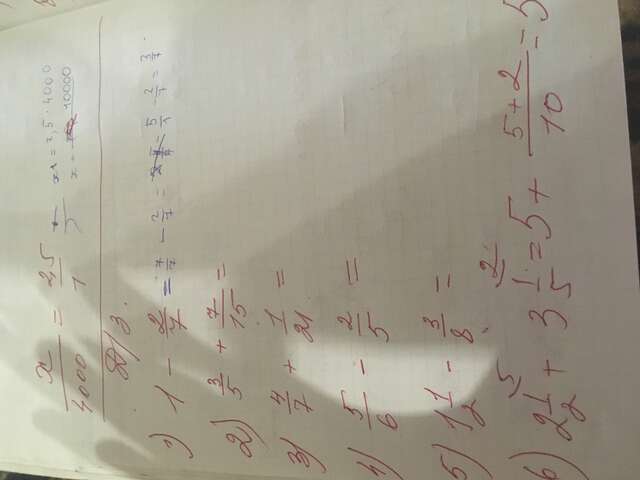 x/4000 = 2,5/1 x1 = 2,5 · 4000
x = 10000
Д/З.
1) 1 - 2/7 = 7/7 - 2/7 = 5/7 - 2/7 = 3/7
2) 3/5 + 7/15 =
3) 4/7 + 1/21 =
4) 5/6 - 2/5 =
5) 1 1/2 - 3/8 =
5 2
6) 2 1/2 + 3 1/5 = 5 + (5+2)/10 = 5